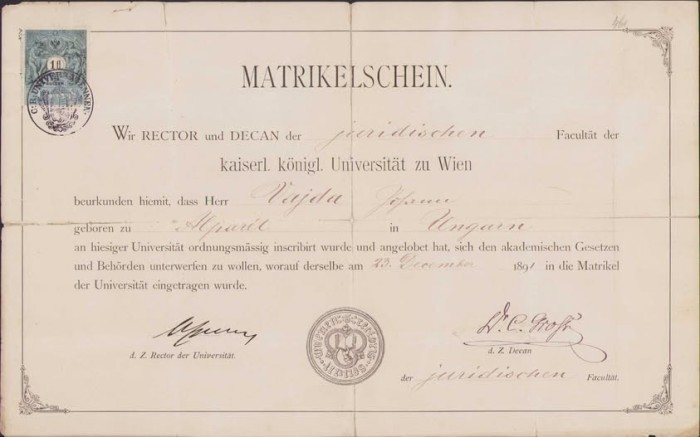 10
MATRIKELSCHEIN.
Wir RECTOR und DECAN der juridischen Facultät der
kaiserl. königl. Universität zu Wien
beurkunden hiemit, dass Herr Vajda Johann
geboren zu Alparét in Ungarn
an hiesiger Universität ordnungsmässig inscribirt wurde und angelobet hat, sich den akademischen Gesetzen
und Behörden unterwerfen zu wollen, worauf derselbe am 23. December 1891 in die Matrikel
der Universität eingetragen wurde.
d. Z. Rector der Universität.
d. Z. Decan
der juridischen Facultät.